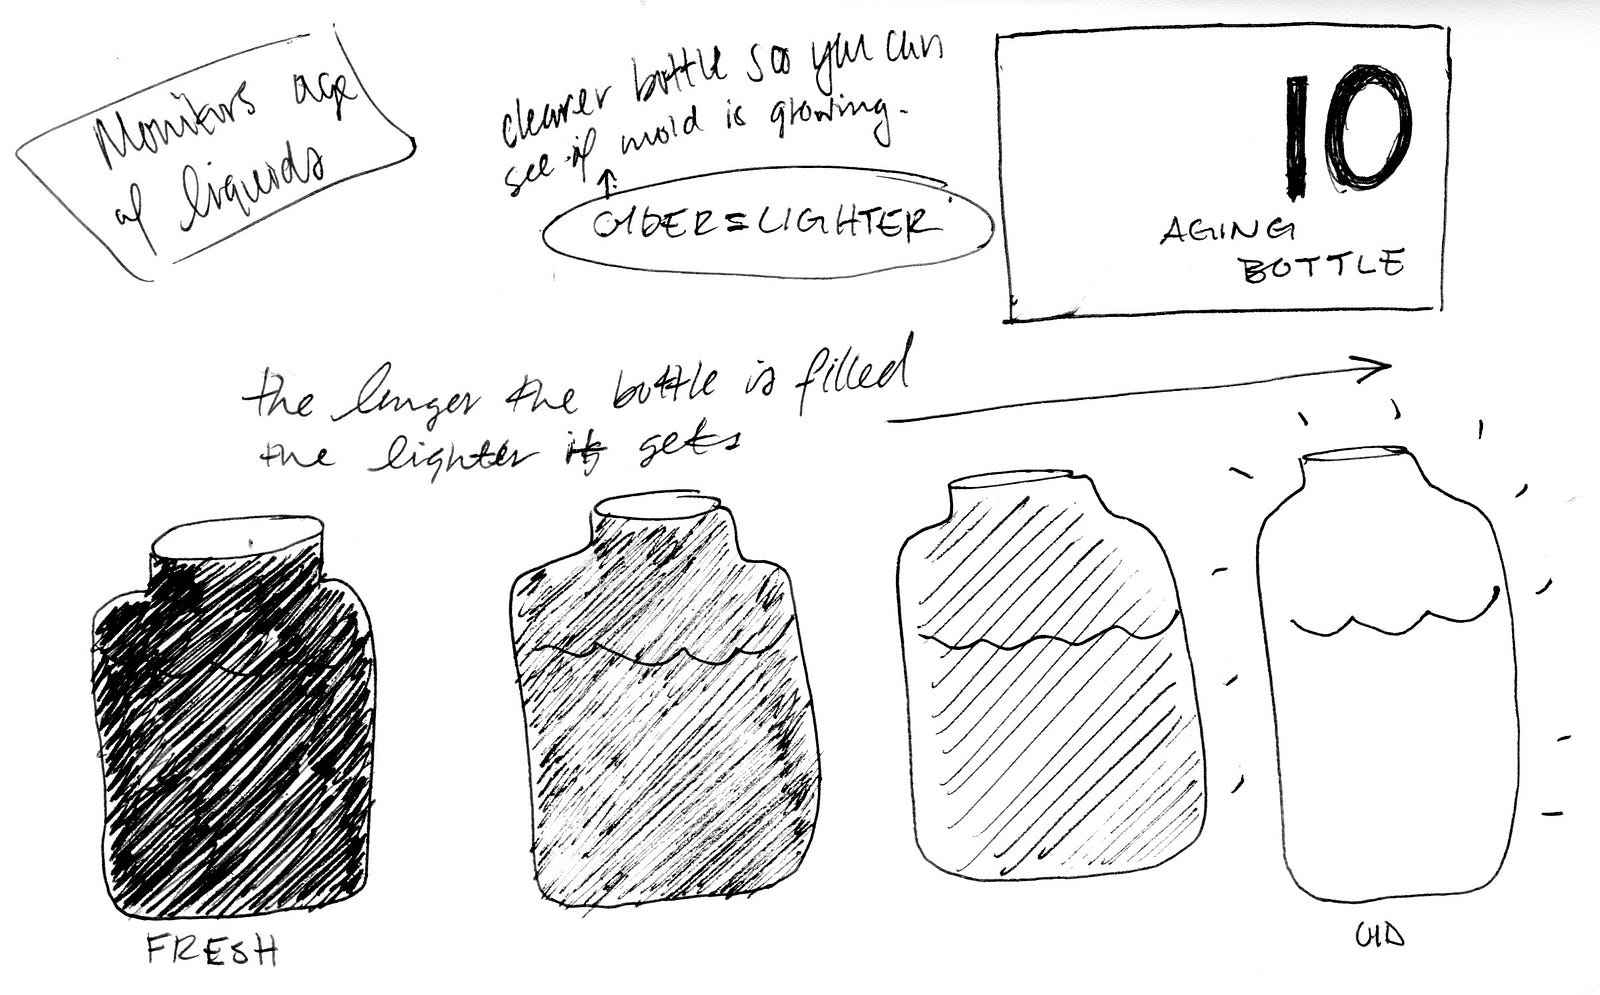 Monitors age
of liquids
clearer bottle so you can
see if mold is growing.
OLDER = LIGHTER
10
AGING
BOTTLE
the longer the bottle is filled
the lighter it gets
FRESH
OLD